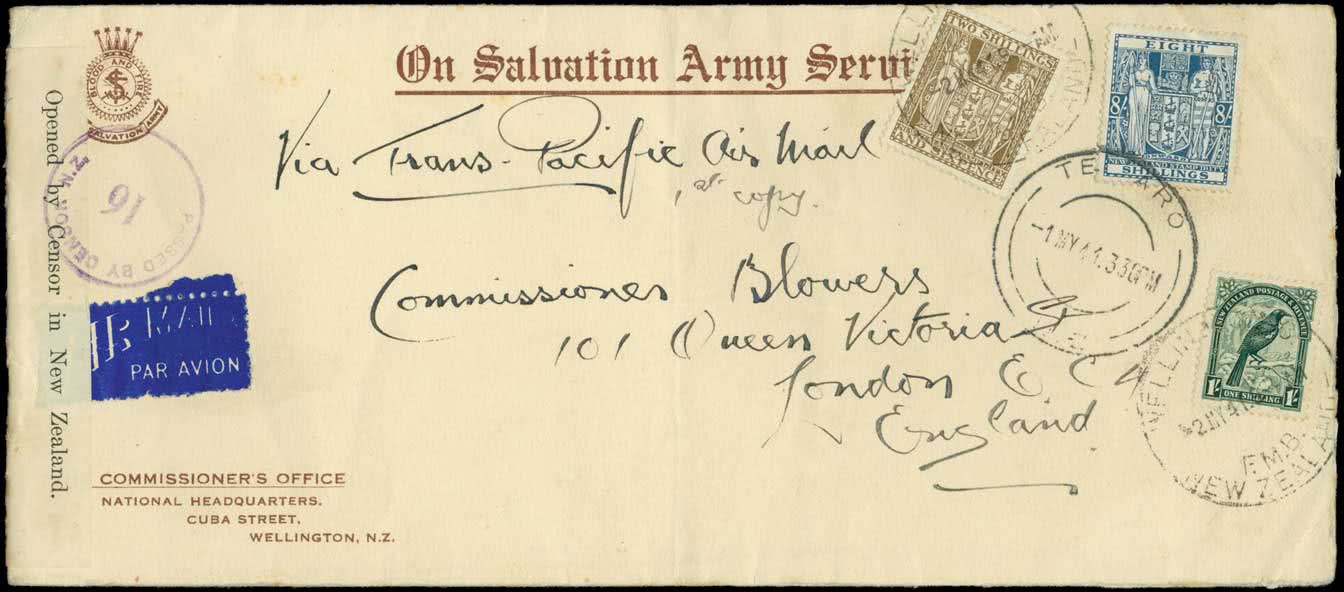 On Salvation Army Servi
BLOOD AND FIRE
SALVATION ARMY
TWO SHILLINGS
AND SIXPENCE
EIGHT
8/- 8/-
NEW ZEALAND STAMP DUTY
SHILLINGS
Via Trans-Pacific Air Mail
1st copy.
Opened by Censor in New Zealand.
PASSED BY CENSOR N.Z.
16
TE ARO
-1 MY 41.330PM
N.Z.
Commissioner Blowers
101 Queen Victoria St
London E. C. 4
England
AIR MAIL
PAR AVION
NEW ZEALAND POSTAGE & REVENUE
1/- ONE SHILLING 1/-
WELLINGTON
-2 MY 41
F.M.B.
NEW ZEALAND
COMMISSIONER'S OFFICE
NATIONAL HEADQUARTERS,
CUBA STREET,
WELLINGTON, N.Z.